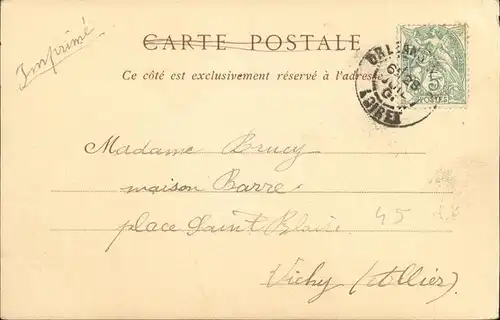 Imprimé
CARTE POSTALE
Ce côté est exclusivement réservé à l'adresse
ORLEANS
LOIRET
5
POSTES
Madame Brucy
maison Barre
place Saint Blaise
45
Vichy (Allier)